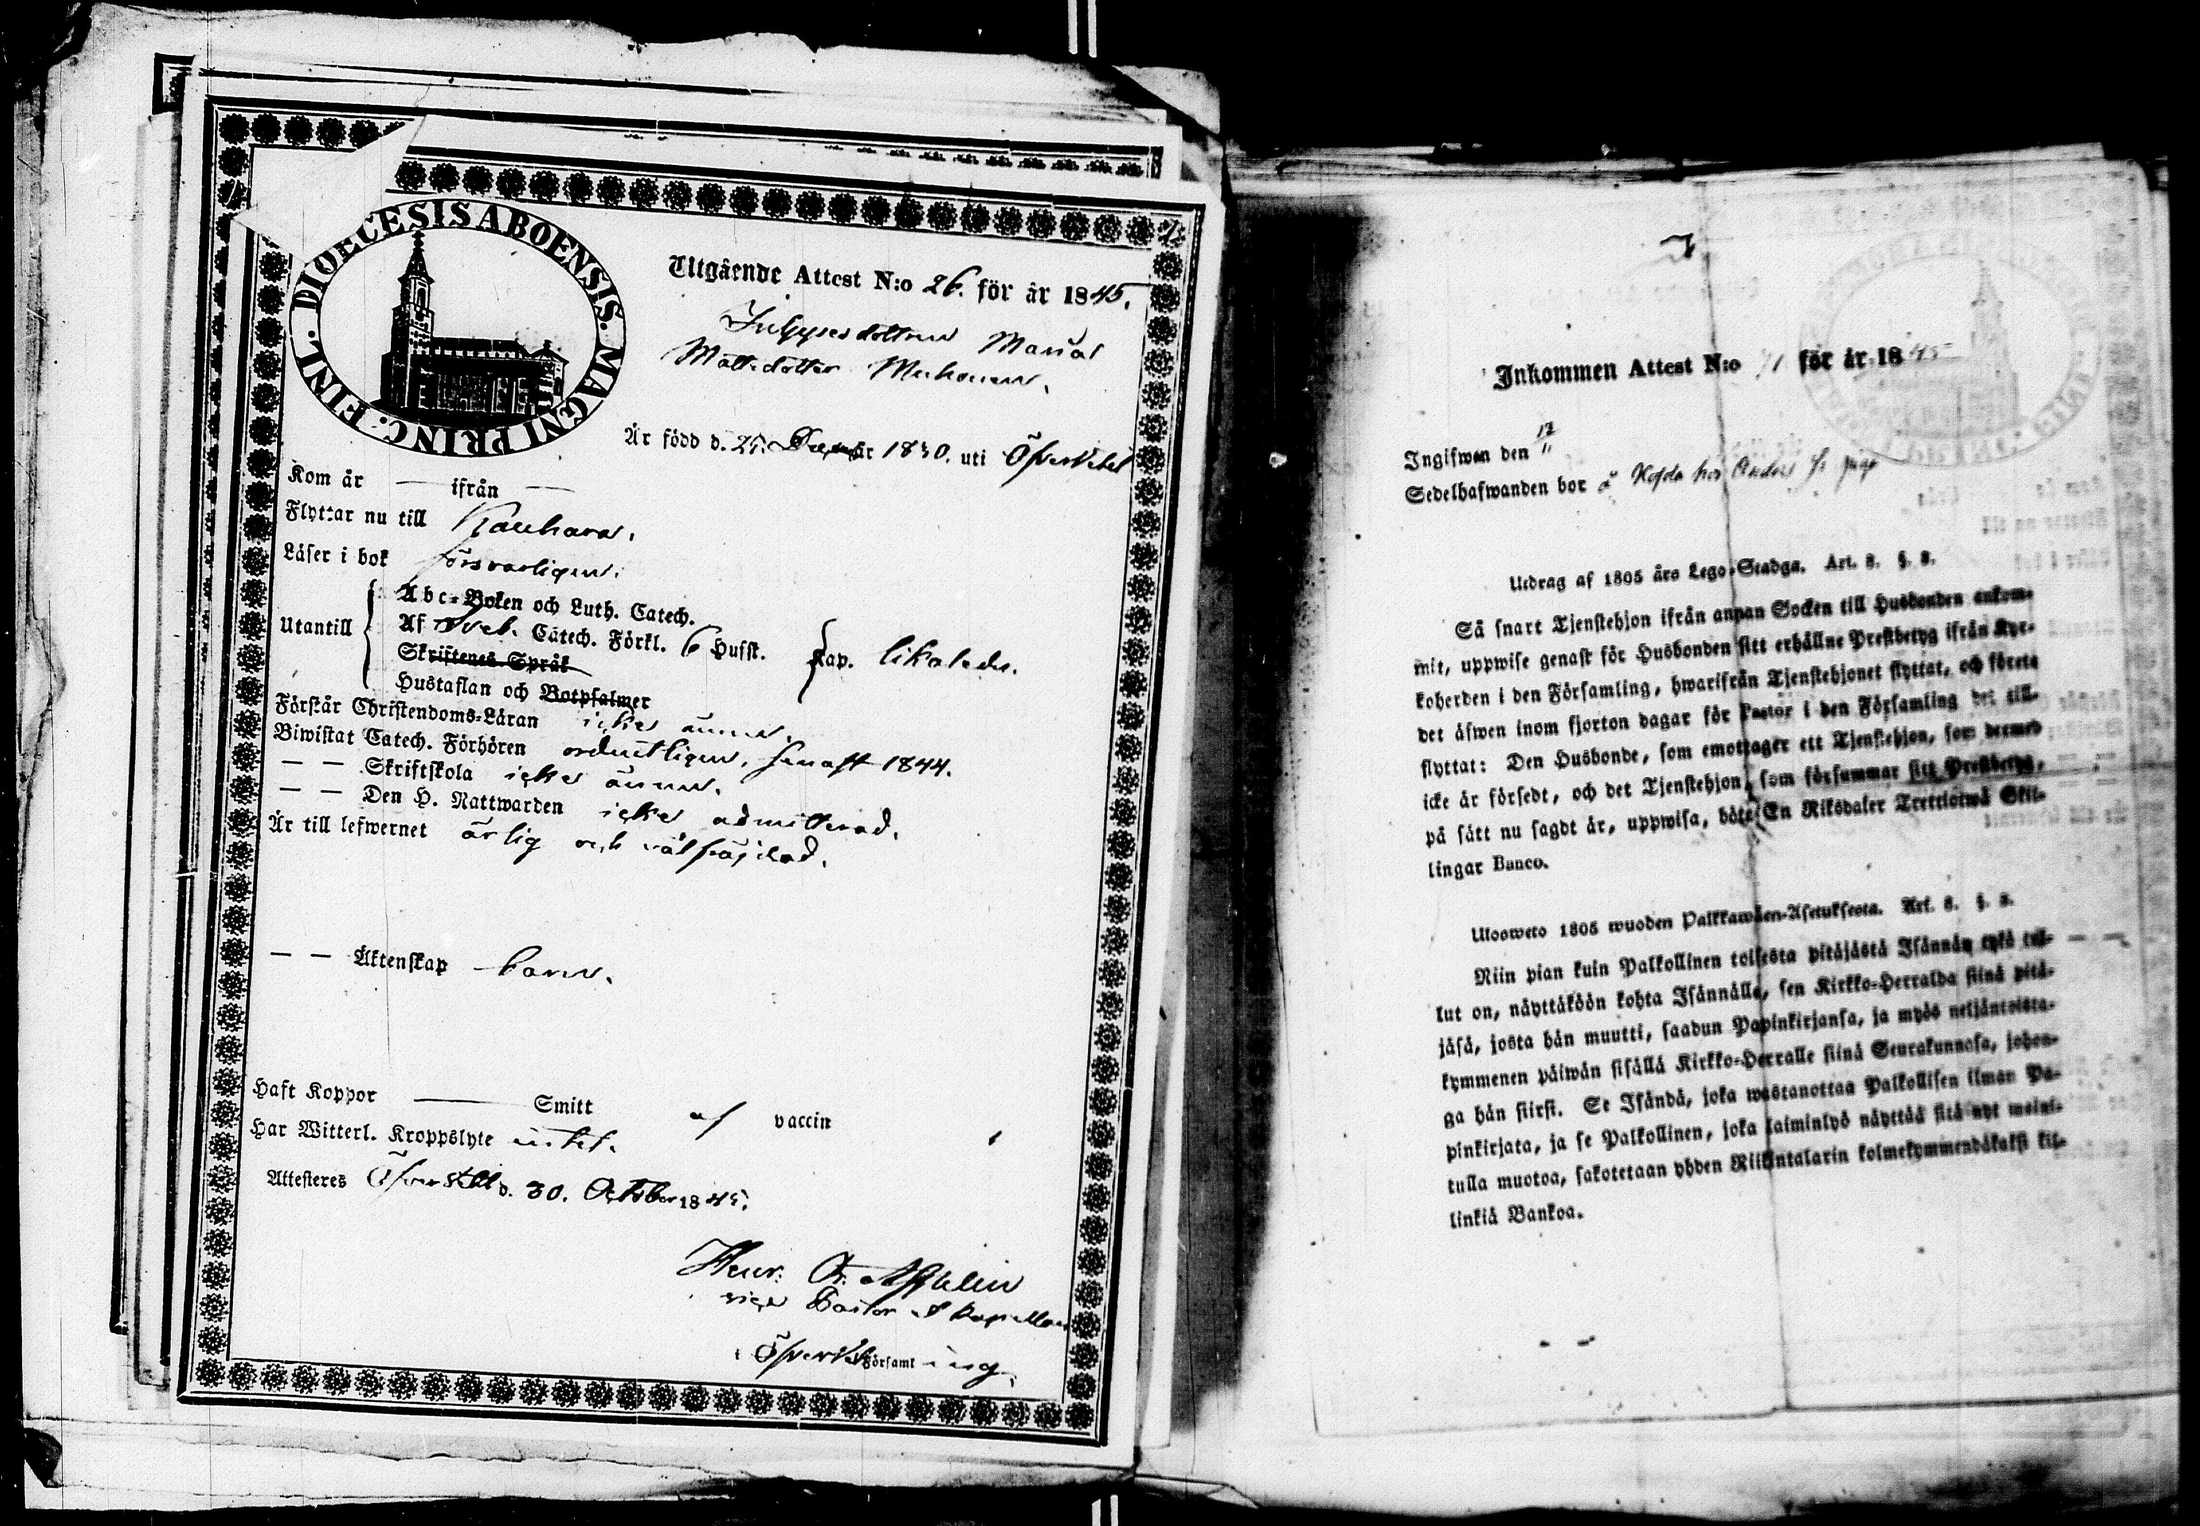 DIOECESIS ABOENSIS. MAGNI PRINC. FINL.
Utgående Attest N:o 26. för år 1845.
Maria
Mattsdotter
Är född d. 25. 1830. uti Öfverketel
Kom år — ifrån —
Flyttar nu till Kauhava.
Läser i bok försvarligen.
Utantill
Abc-Boken och Luth. Catech.
Af Sveb. Catech. Förkl. 6 Hufst.
Skriftenes Språk
Hustaflan och Botpsalmer
Kap. likaledes.
Förstår Christendoms-Läran icke ännu.
Biwistat Catech. Förhören ordentligen, senast 1844.
— — Skriftskola icke ännu.
— — Den H. Nattwarden icke admitterad.
Är till lefwernet ärlig och välfräjdad.
— — Äktenskap barn.
Haft Koppor — Smitt af vaccin
Har Witterl. Kroppslyte intet.
Attesteres d. 30. October 1845.
Henr.
vice Pastor
i Församl ing
7
Inkommen Attest N:o 71 för år 1845
Ingifwen den 17/11
Sedelhafwanden bor å hos Anders
Utdrag af 1805 års Lego-Stadga. Art. 8. §. 8.
Så snart Tjenstehjon ifrån annan Socken till Husbonden ankom-
mit, uppwise genast för Husbonden sitt erhållne Prestbetyg ifrån Kyr-
koherden i den Församling, hwarifrån Tjenstehjonet flyttat, och förete
det äfwen inom fjorton dagar för Pastor i den Församling det till-
flyttat: Den Husbonde, som emottager ett Tjenstehjon, som dermed
icke är försedt, och det Tjenstehjon, som försummar sitt Prestbetyg,
på sätt nu sagdt är, uppwisa, böte En Riksdaler Trettiotwå Skil-
lingar Banco.
Ulosweto 1805 wuoden Palkkawäen-Asetuksesta. Art. 8. §. 8.
Niin pian kuin Palkollinen toisesta pitäjästä Isännän tykö tul-
lut on, näyttäköön kohta Isännälle, sen Kirkko-Herralda siinä pitä-
jäsä, josta hän muutti, saadun Papinkirjansa, ja myös neljäntoista-
kymmenen päiwän sisällä Kirkko-Herralle siinä Seurakunnasa, johon-
ga hän siirsi. Se Isändä, joka wastanottaa Palkollisen ilman Pa-
pinkirjata, ja se Palkollinen, joka laiminlyö näyttää sitä nyt maini-
tulla muotoa, sakotetaan yhden Riikintalarin kolmekymmendäkaksi kil-
linkiä Bankoa.